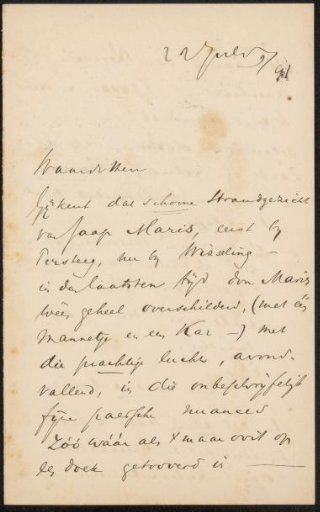 22 July 91
Waarde Heer
Gij kent dat schoone Strandgezicht
van Jaap Maris, eerst by
Tersteeg, nu by Wisseling –
in den laatsten tijd door Maris
wéér geheel overschilderd, (met één
Mannetje en een Kar –) met
die prachtige lucht, avond-
vallend, in die onbeschrijfelijk
fijne poetische nuances
Zóó wáár als maar ooit op
doek getooverd is —